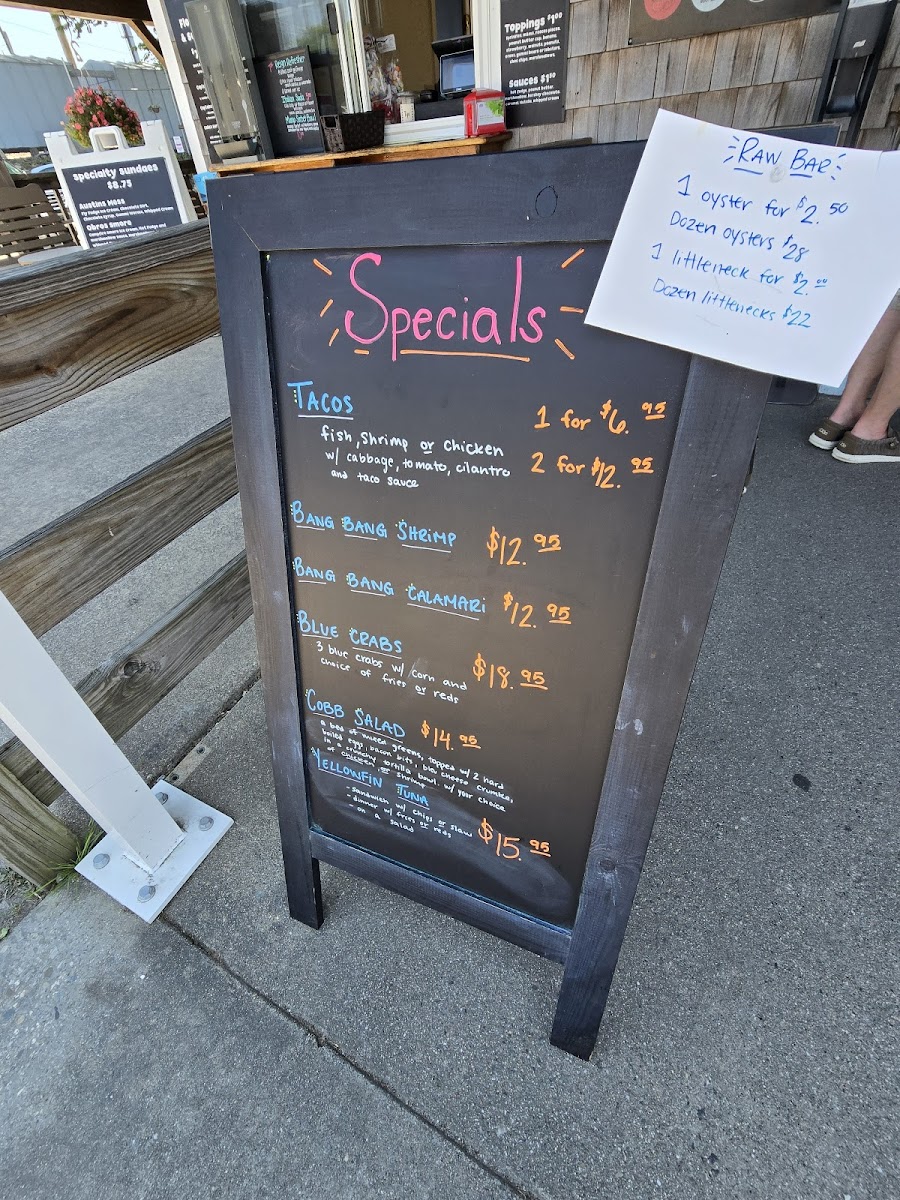 Toppings $1.00
Sauces $1.00
specialty sundaes
$8.75
Austins Mess
Obros Smore
RAW BAR
1 oyster for $2.50
Dozen oysters $28
1 littleneck for $2.00
Dozen littlenecks $22
Specials
TACOS
1 for $6.95
fish, shrimp or chicken
w/ cabbage, tomato, cilantro
and taco sauce
2 for $12.95
BANG BANG SHRIMP $12.95
BANG BANG CALAMARI $12.95
BLUE CRABS
3 blue crabs w/ corn and
choice of fries or reds
$18.95
COBB SALAD $14.95
a bed of mixed greens, topped w/ 2 hard
boiled eggs, bacon bits, bleu cheese crumbles,
in a crunchy tortilla bowl. w/ your choice
of chicken or shrimp
YELLOWFIN TUNA
- sandwich w/ chips or slaw
- dinner w/ fries or reds
- on a salad
$15.95